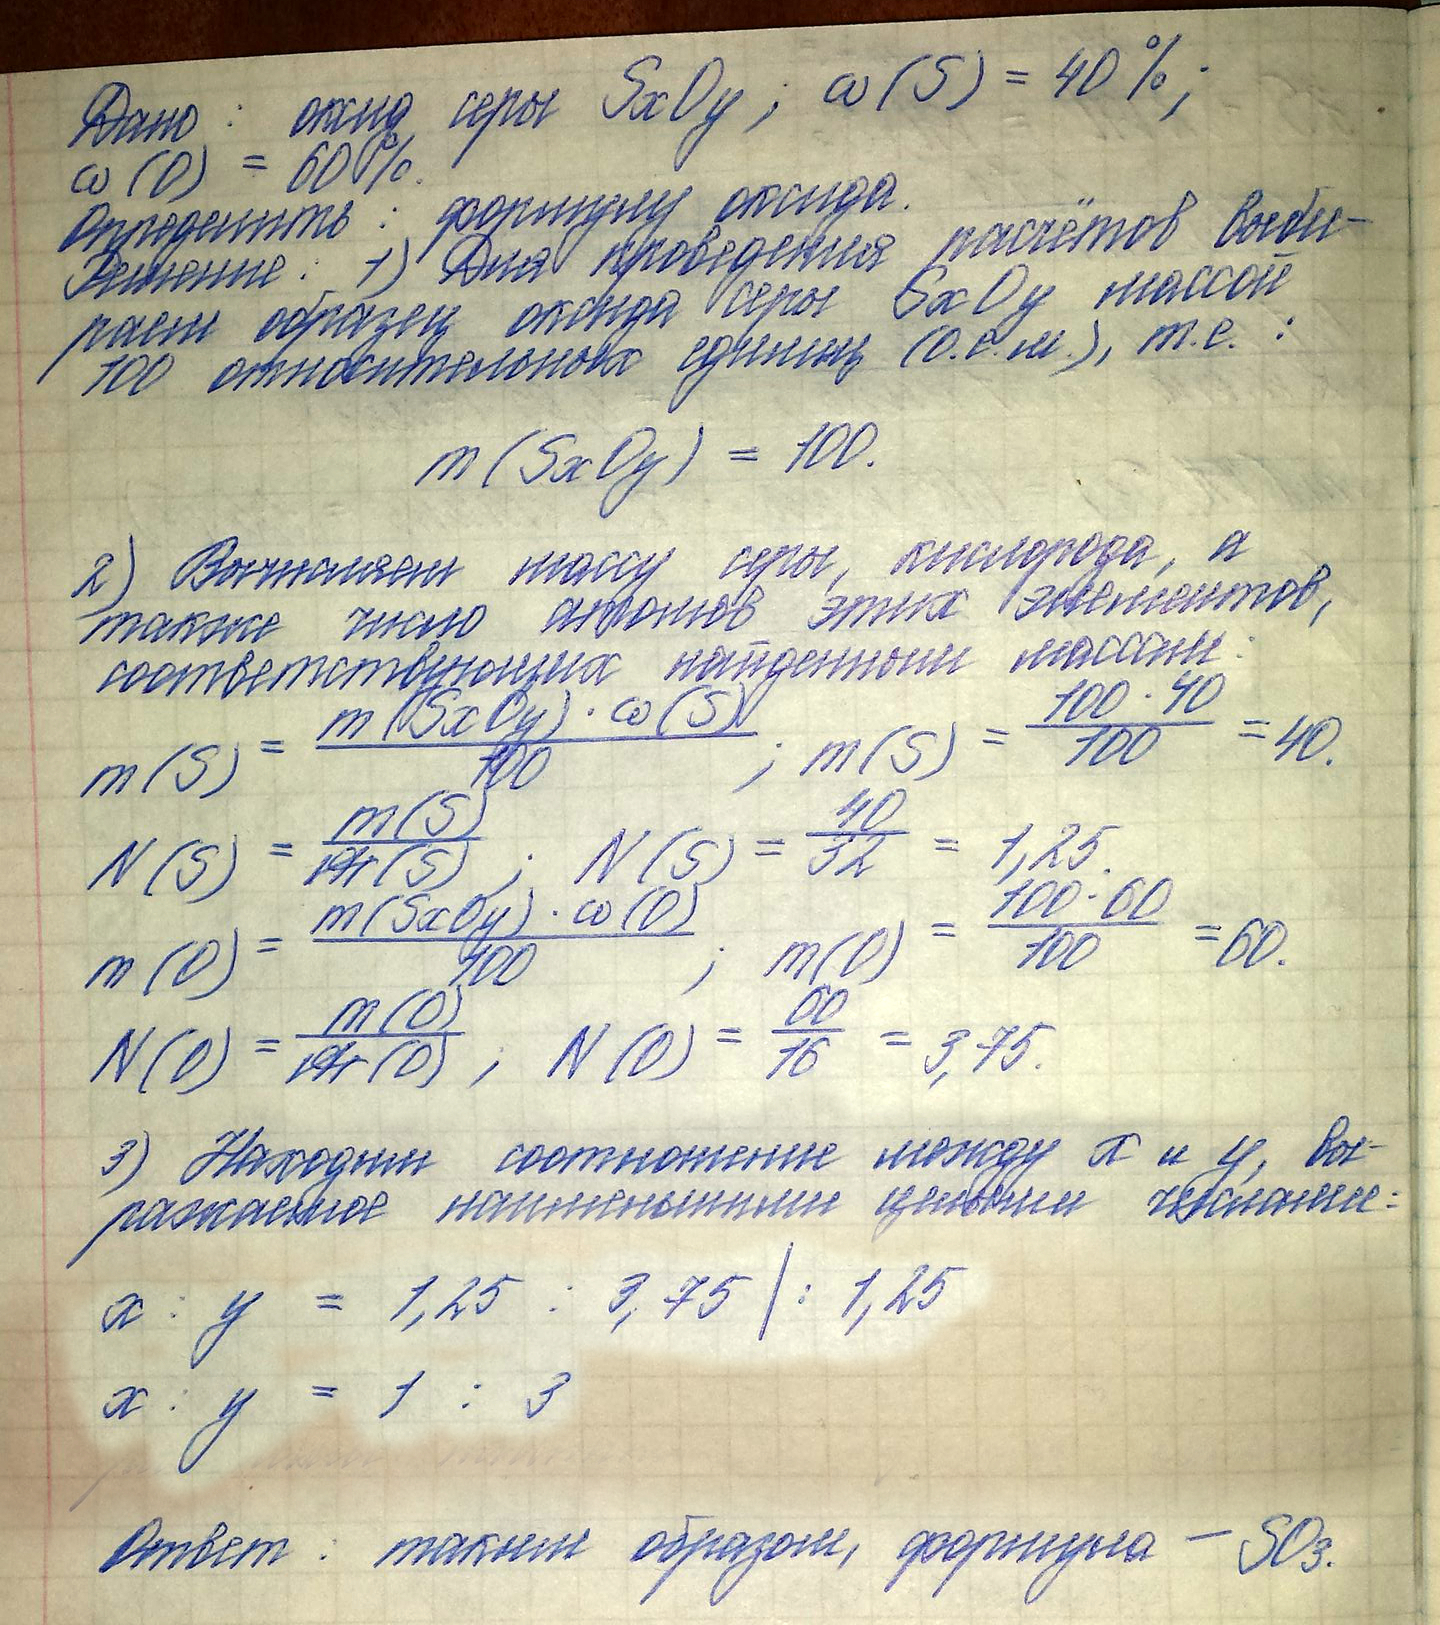 Дано: оксид серы SxOy; ω(S) = 40%;
ω(O) = 60%.
Определить: формулу оксида.
Решение: 1) Для проведения расчётов выби-
раем образец оксида серы SxOy массой
100 относительных единиц (о.е.м.), т.е.:
m(SxOy) = 100.
2) Вычисляем массу серы, кислорода, а
также число атомов этих элементов,
соответствующих найденным массам:
m(S) = m(SxOy)·ω(S)/100; m(S) = 100·40/100 = 40.
N(S) = m(S)/Ar(S); N(S) = 40/32 = 1,25.
m(O) = m(SxOy)·ω(O)/100; m(O) = 100·60/100 = 60.
N(O) = m(O)/Ar(O); N(O) = 60/16 = 3,75.
3) Находим соотношение между x и y, вы-
ражаемое наименьшими целыми числами:
x : y = 1,25 : 3,75 | : 1,25
x : y = 1 : 3
Ответ: таким образом, формула – SO3.